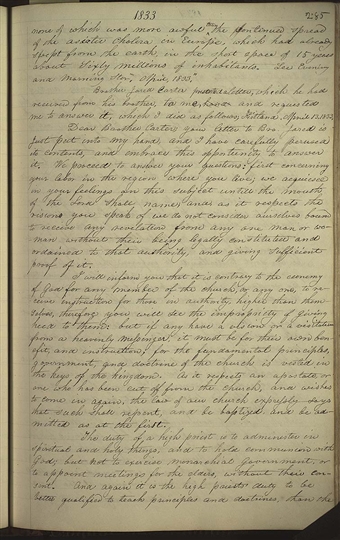 1833 285
none of which was more awful, "The continued spread
of the asiatic Cholera, in Europe, which had already
swept from the earth in the short space of 15 years
about Sixty millions of inhabitants. See Evening
and Morning Star, April, 1833."
Brother Jared Carter presented a letter, which he had
received from his brother, to me, and requested
me to answer it, which I did as follows; Kirtland, April 13, 1833.
Dear Brother Carter, your letter to Bro. Jared is
just put into my hand, and I have carefully perused
its contents, and embrace this opportunity to answer
it. We proceed to answer your questions; first concerning
your labor in the region where you live, we acquiesce
in your feelings on this subject until the mouth
of the Lord shall name, and as it respects the
visions you speak of we do not consider ourselves bound
to receive any revelation from any one man or wo-
man without their being legally constituted and
ordained to that authority, and giving sufficient
proof of it.
I will inform you that it is contrary to the economy
of God for any member of the church, or any one, to re-
ceive instruction for those in authority, higher than them-
selves, therefore you will see the impropriety of giving
heed to them; but if any have a vision or a visitation
from a heavenly messenger, it must be for their own ben-
efit, and instruction; for the fundamental principles,
government, and doctrine of the church is vested in
the keys of the kingdom. As it respects an apostate, or
one who has been cut off from the church, and wishes
to come in again, the law of our church expressly says
that such shall repent, and be baptized and be ad-
mitted as at the first.
The duty of a high priest is to administer in
spiritual and holy things, and to hold communion with
God; but not to exercise monarchial government, or
to appoint meetings for the elders, without their con-
sent. And again it is the high priests' duty to be
better qualified to teach principles and doctrines, than the